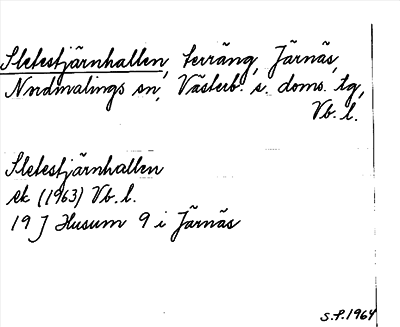 Sletestjärnhallen, terräng, Järnäs,
Nordmalings sn, Västerb. s. doms. tg,
Vb. l.
Sletestjärnhallen
ek (1963) Vb. l.
19 J Husum 9 i Järnäs
S.F. 1964